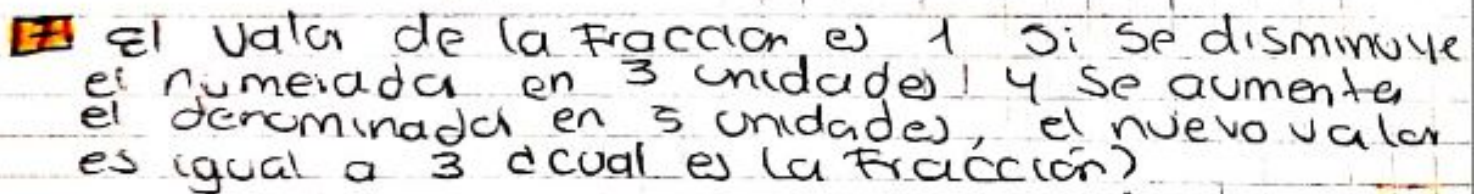 7 El valor de la Fraccion es 1 Si Se disminuye
el numerador en 3 unidades! y Se aumenta
el denominador en 5 unidades, el nuevo valor
es igual a 3 dcual es la Fracción?